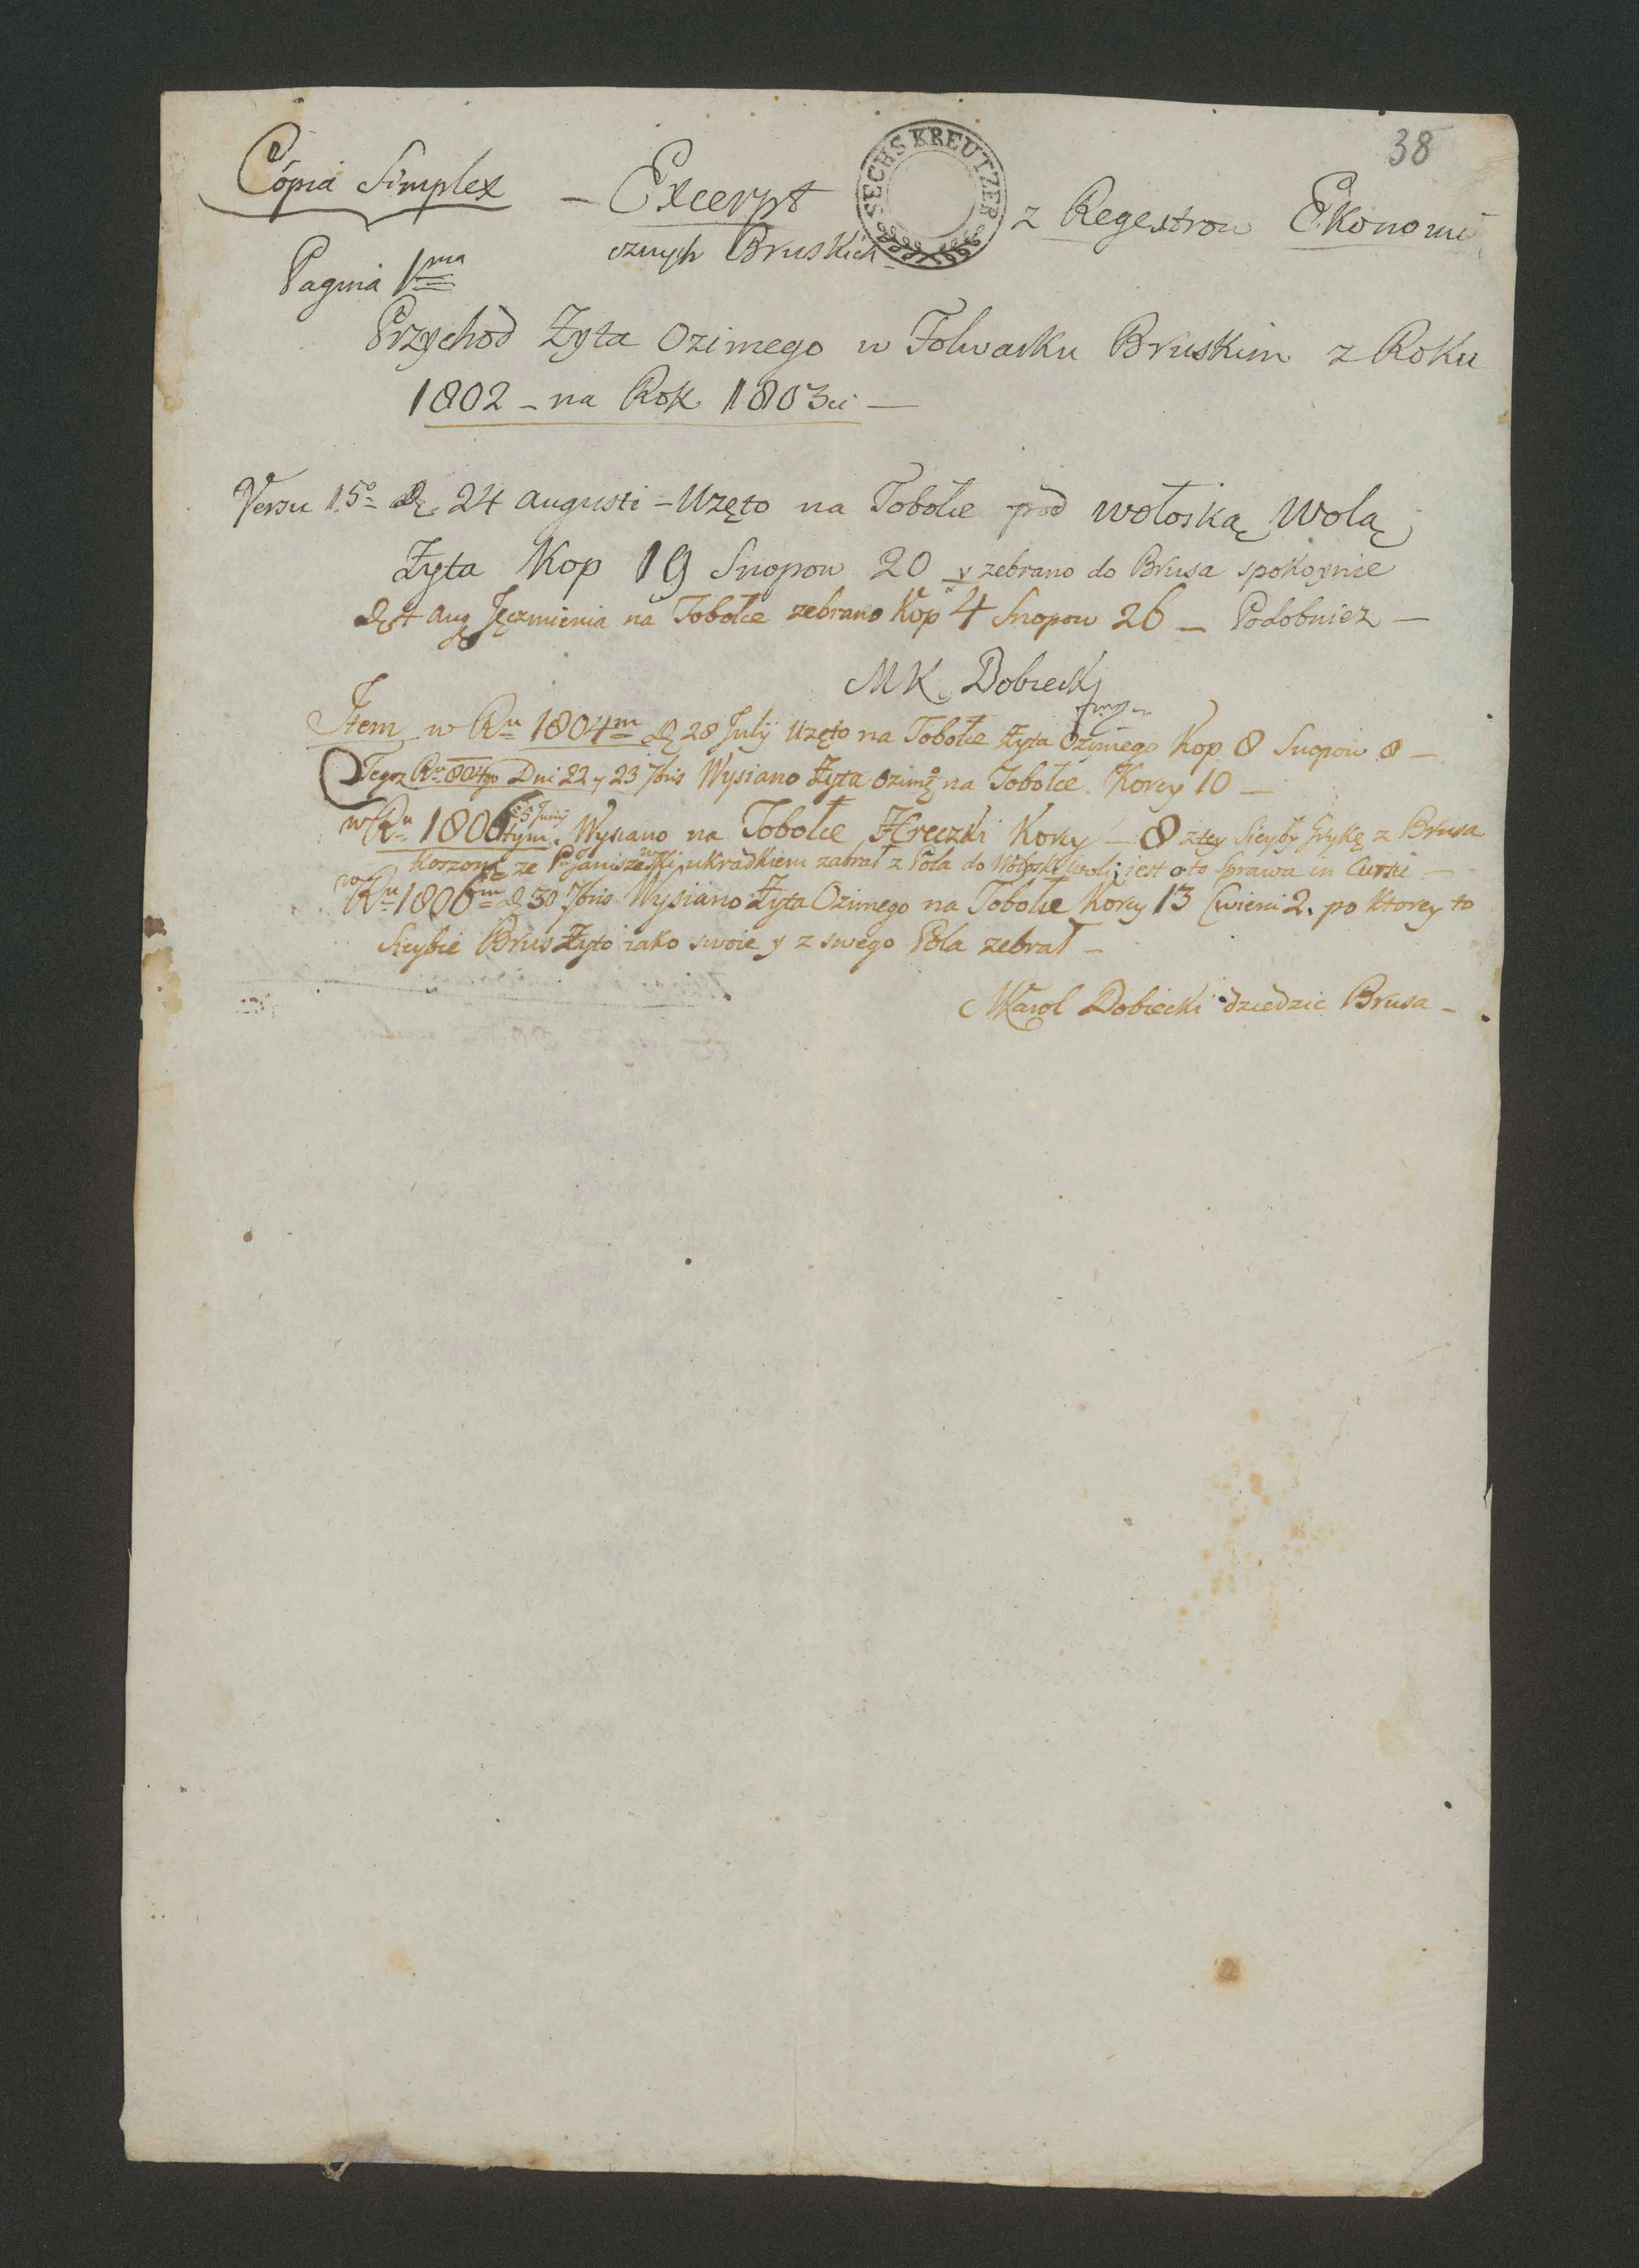 38
SECHS KREUTZER
Copia Simplex – Excerpt z Regestrow Ekonomi
cznych Bruskich
Pagina 1ma
Przychod Zyta Ozimego w Folwarku Bruskim z Roku
1802 – na Rok 1803ci —
Versu 15o De 24 augusti – Uzęto na Tobołce pod wołoską Wolą
Zyta Kop 19 Snopow 20 y zebrano do Brusa spokoynie
Jęczmienia na Tobołce zebrano Kop 4 Snopow 26 — Podobniez —
MK Dobiecki
Item w Ru 1804m D 28 July Uzęto na Tobołce Zyta Ozimego Kop 8 Snopow 8 —
Tegoz Ru 804go Dni 22 y 23 7bris Wysiano Zyta Ozimgo na Tobołce Korcy 10 —
w Ru 1806tym 5 Juny Wysiano na Tobołce Hreczki Korcy — 8 z tey Sieyby Grykę z Brusa
Koszoną ze P. Janiszewski ukradkiem zabrał z Pola do Wołoski Woli; jest o to Sprawa in Curssu —
w Ru 1806m D 30 7bris Wysiano Zyta Ozimego na Tobołce Korcy 13 Cwierci 2. po ktorey to
Sieybie Brus Zyto iako swoie y z swego Pola zebrał —
MKarol Dobiecki dziedzic Brusa —